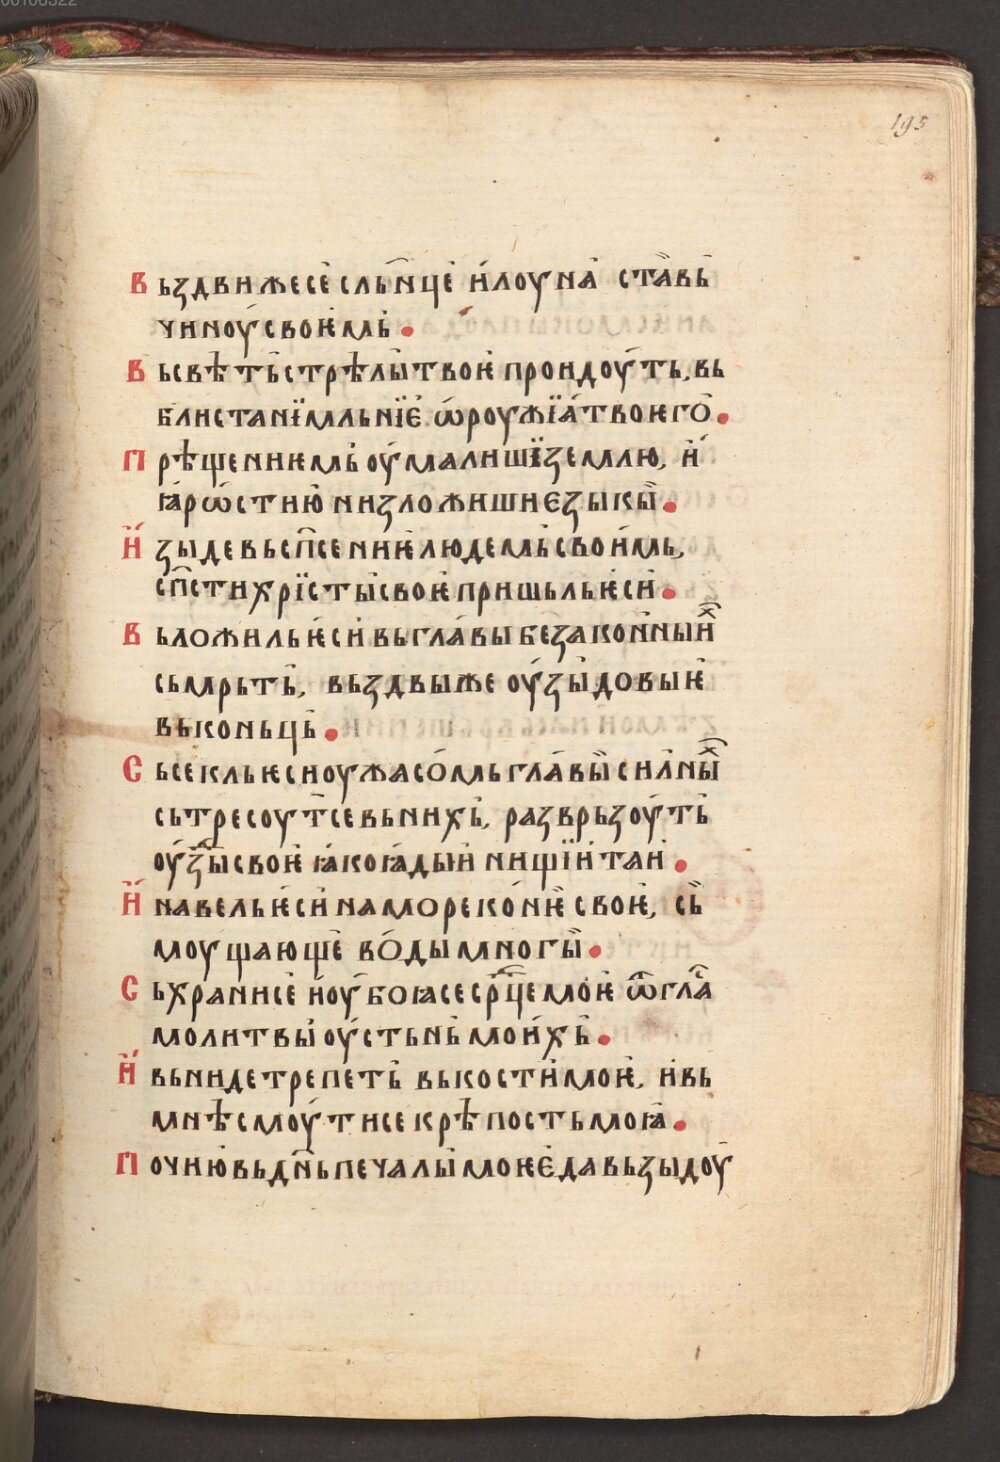 195
Вьздвижесе сльн҃це и҆лоуна ставь
чиноу своѥмь
Вьсвѣть стрѣлы твоѥ проидоуть, вь
блистанїи мльнїѥ ѡ҆роужїа твоѥго
Прѣщениѥмь оу҆малиши землю, и҆
ꙗростию низложиши єзыкы
И҆зыде вьсп҃сениѥ людемь своимь,
сп҃сти хрїсты своѥ пришьль ѥси
Вьложиль ѥси вьглавы безаконныиⷯ
сьмрьть, вьздвыже оу҆зы довыѥ
вьконьць
Сьсекль ѥси оужасомь главы силныⷯ
сьтресоут҃се вьнихь, разврьзоуть
оу҆зды своѥ ꙗко ꙗдыи нищїи таи
И҆навель ѥси наморе конѥ своѥ, сь
моущающе воды многы
Сьхранисе и҆оу҆боꙗсе ср҃це моѥ ѿ гла҃
молитвы оу҆стьнь моихь
И҆вьниде трепеть выкости моѥ, и҆вь
мнѣ смоутисе крѣпость моꙗ
Почию вьдн҃ь печалы моѥ є҆да вьзыдоу